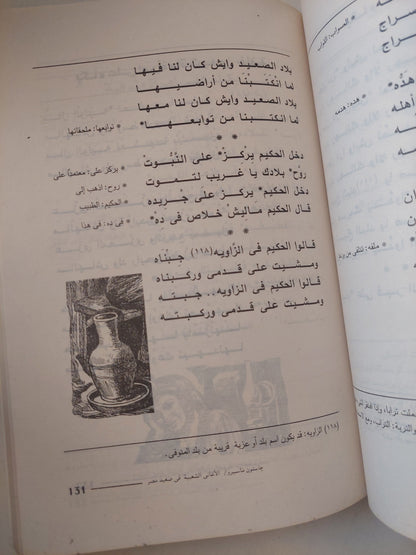 بلاد الصعيد وايش كان لنا فيها
لما انكتبنا من أراضيها
بلاد الصعيد وايش كان لنا معها
لما انكتبنا من توابعها*
* توابعها: ملحقاتها
* *
دخل الحكيم يركز* على النبوت
* يركز على: معتمدًا على
روح* بلادك يا غريب لتموت
روح: اذهب إلى
دخل الحكيم* يركز على جريده
* الحكيم: الطبيب
قال الحكيم ماليش خلاص فى ده*
* فى ده: فى هذا
* *
قالوا الحكيم فى الزاويه (١١٨) جبناه
ومشيت على قدمى وركبناه
قالوا الحكيم فى الزاويه.. جبته
ومشيت على قدمى وركبته
(١١٨) الزاويه: قد يكون اسم بلد أو عزبة قريبة من بلد المتوفى.
جاستون ماسبيرو/ الأغانى الشعبية فى صعيد مصر
131
* الصواب: التراب
راج
هده*
* هده: هدمه
أهله